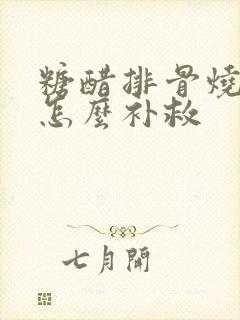 糖醋排骨燒
怎麼补救
七月開